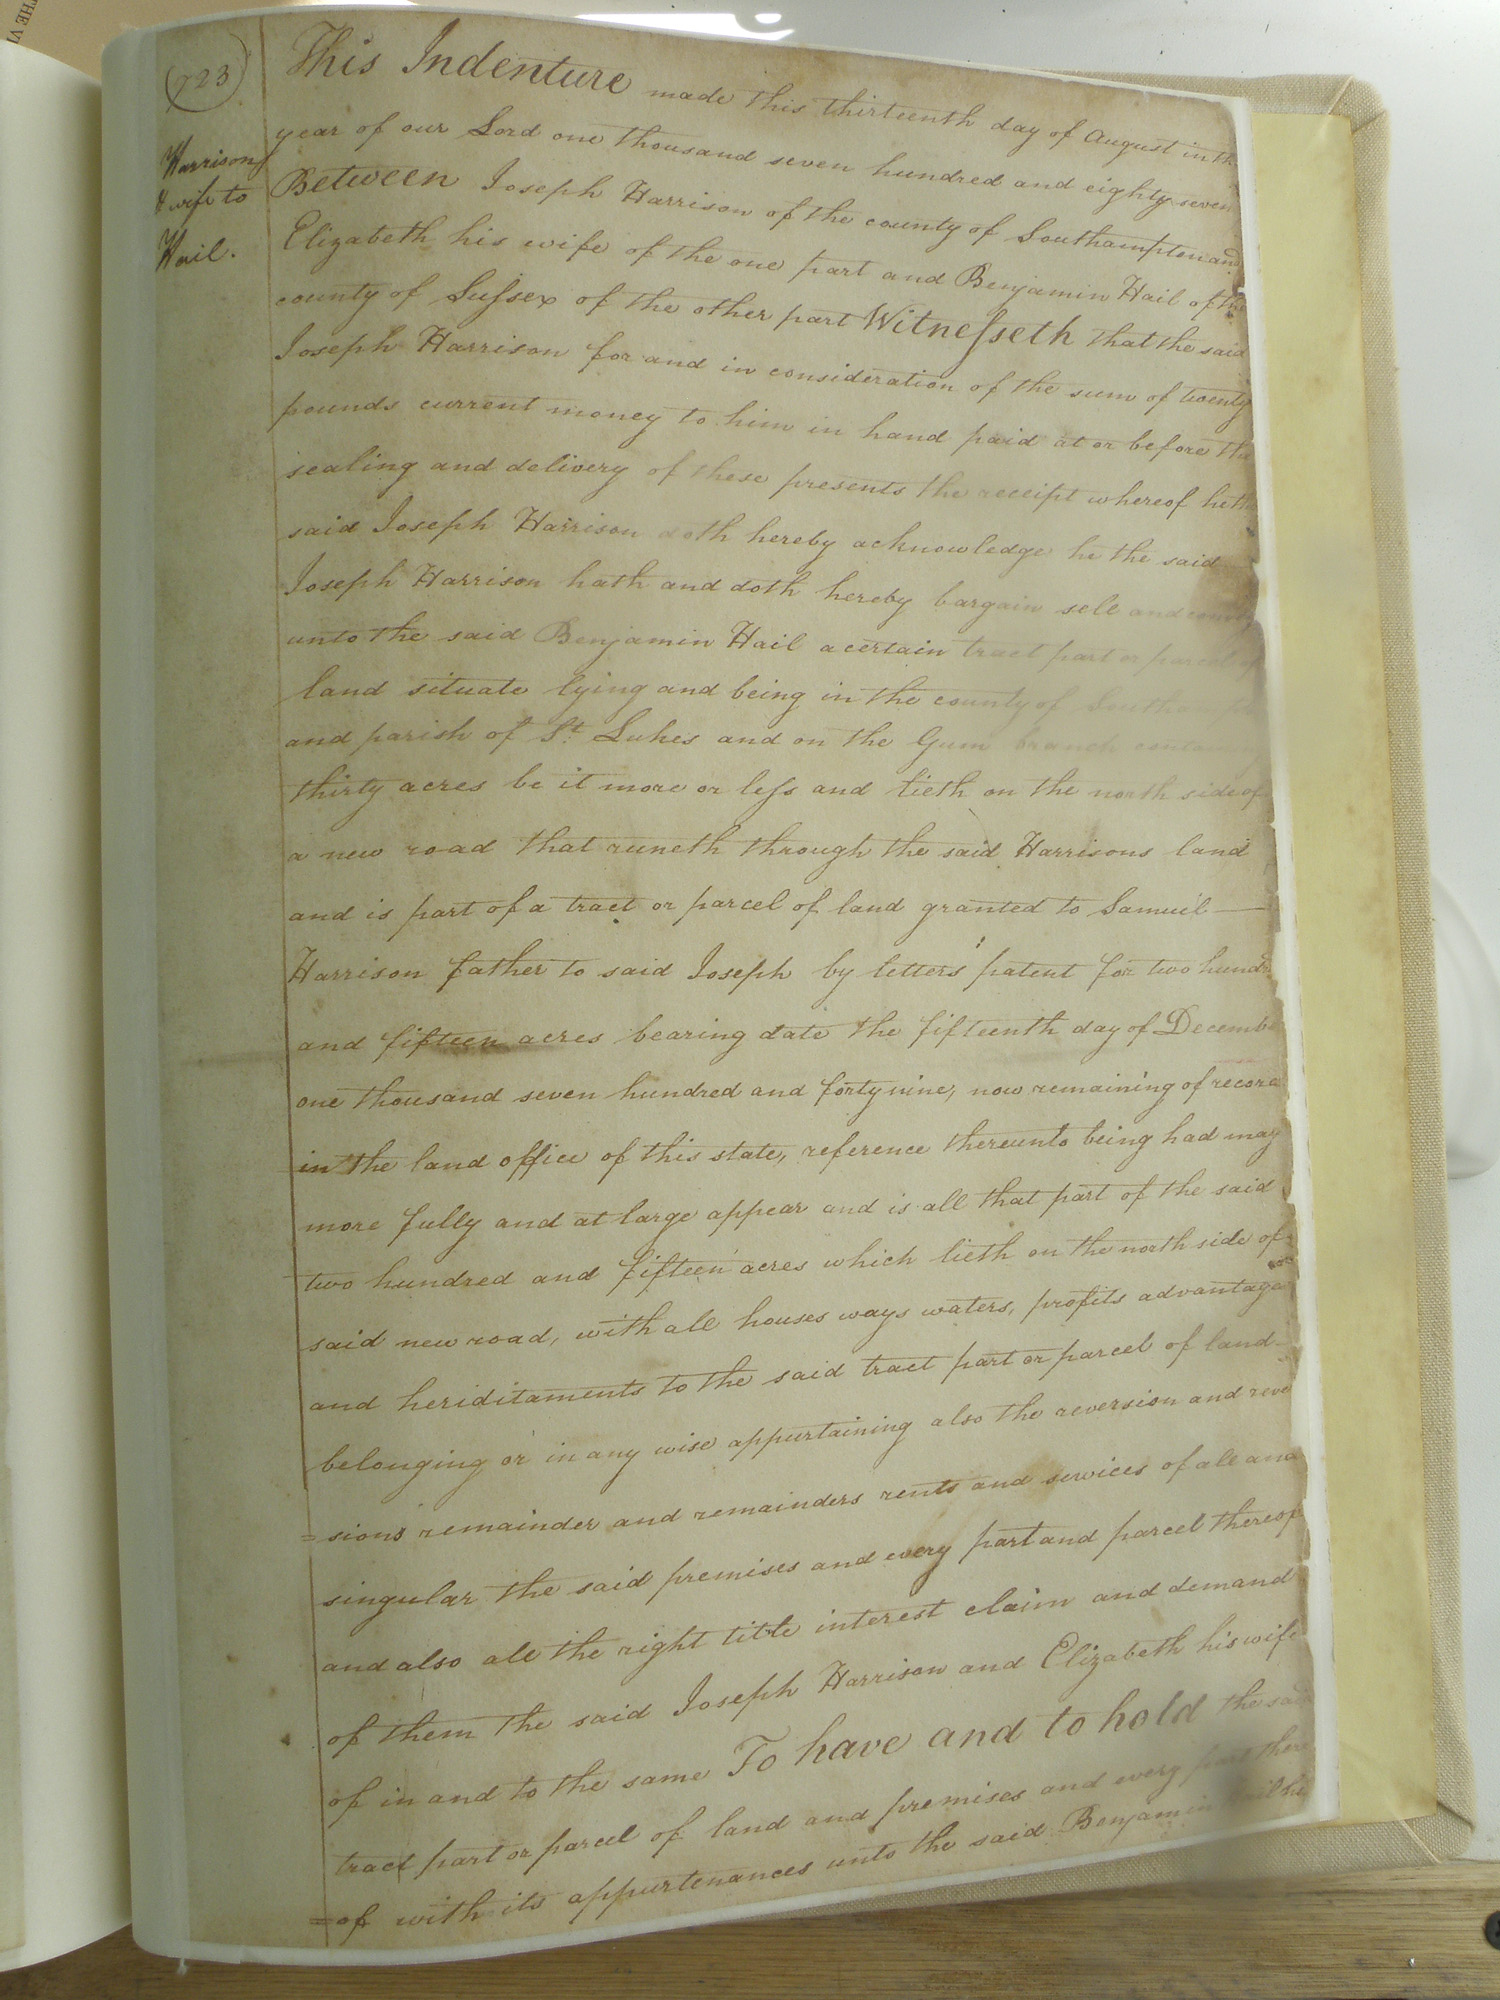 THE VI
723
Harrison
& wife to
Hail.
This Indenture made this thirteenth day of August in th
year of our Lord one thousand seven hundred and eighty seven
Between Joseph Harrison of the county of Southampton and
Elizabeth his wife of the one part and Benjamin Hail of the
county of Sussex of the other part Witnesseth that the said
Joseph Harrison for and in consideration of the sum of twenty
pounds current money to him in hand paid at or before the
sealing and delivery of these presents the receipt whereof he th
said Joseph Harrison doth hereby acknowledge he the said
Joseph Harrison hath and doth hereby bargain sell and convey
unto the said Benjamin Hail a certain tract part or parcel of
land situate lying and being in the county of Southampton
and parish of St. Lukes and on the Gum branch containing
thirty acres be it more or less and lieth on the north side of
a new road that runeth through the said Harrisons land
and is part of a tract or parcel of land granted to Samuil
Harrison father to said Joseph by letters patent for two hundr
and fifteen acres bearing date the fifteenth day of Decembe
one thousand seven hundred and forty nine, now remaining of record
in the land office of this state, reference thereunto being had may
more fully and at large appear and is all that part of the said
two hundred and fifteen acres which lieth on the north side of
said new road, with all houses ways waters, profits advantage
and heriditaments to the said tract part or parcel of land
belonging or in any wise appurtaining also the reversion and reve
=sions remainder and remainders rents and services of all and
singular the said premises and every part and parcel thereof
and also all the right title interest claim and demand
of them the said Joseph Harrison and Elizabeth his wife
of in and to the same To have and to hold the said
tract part or parcel of land and premises and every part there
=of with its appurtenances unto the said Benjamin Hail his